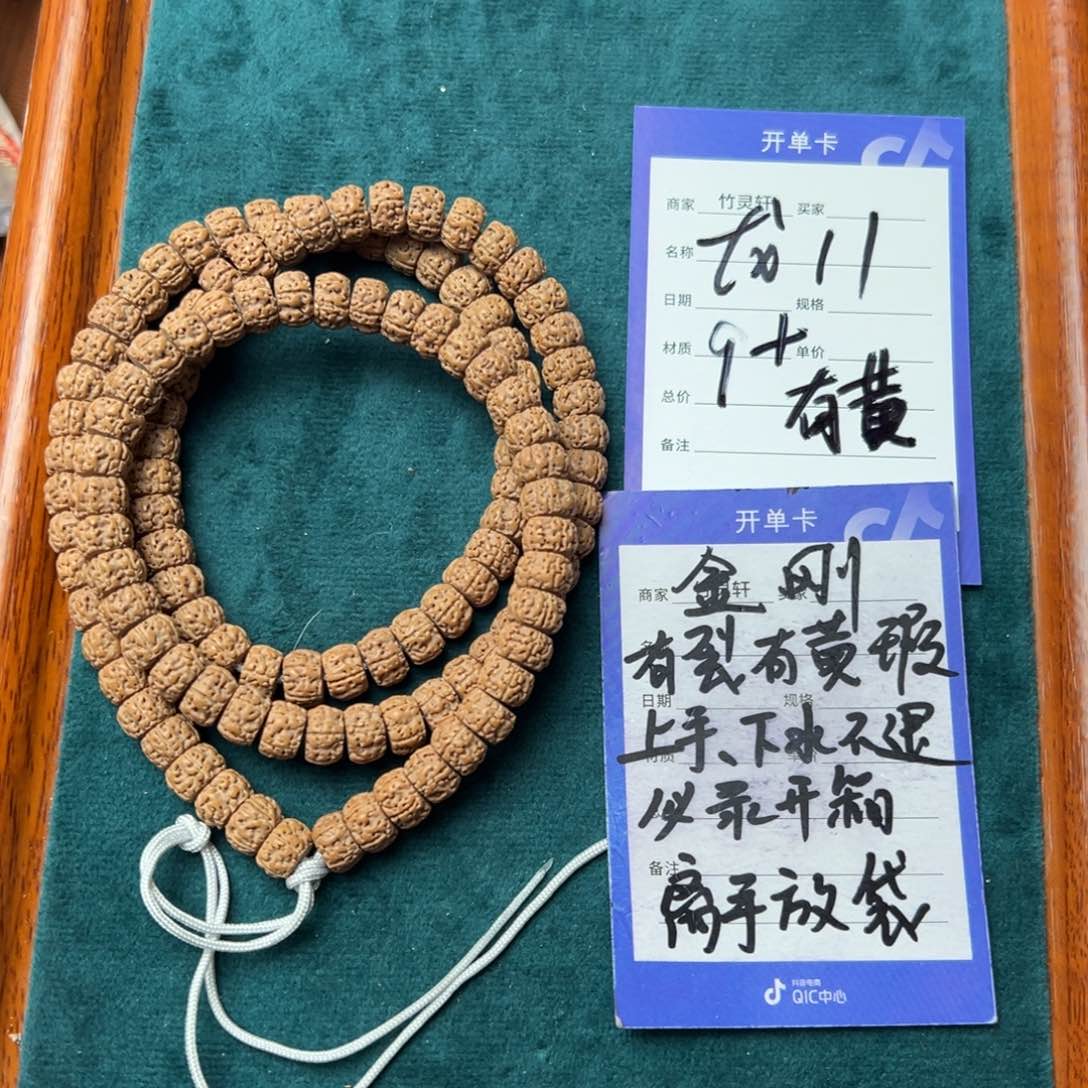 开单卡
商家 竹灵轩 买家
名称 11
日期 规格
材质 9+ 单价
总价 有黄
备注
开单卡
商家 金刚 轩
有裂有黄瑕
日期 规格
上手、下水不退
必录开箱
备注
离手放袋
抖音电商
QIC中心